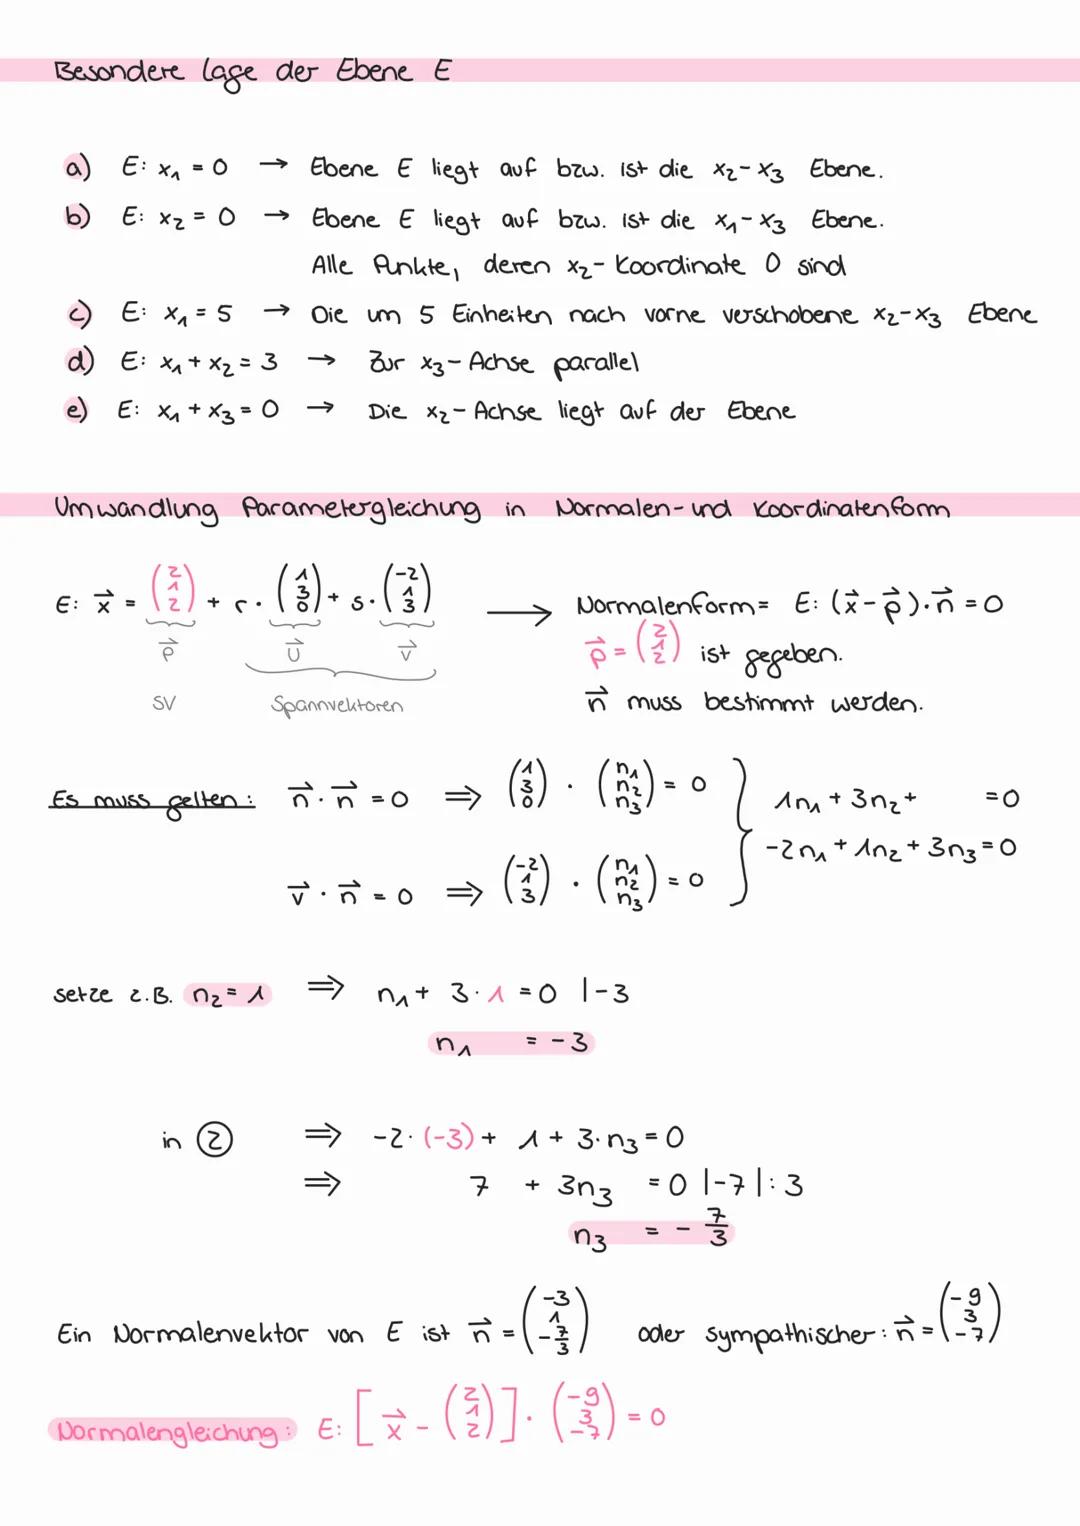 Besondere Lage der Ebene E
a) E: x₁ = 0 → Ebene E liegt auf bzw. ist die x₂-x₃ Ebene.
b) E: x₂ = 0 → Ebene E liegt auf bzw. ist die x₁-x₃ Ebene.
Alle Punkte, deren x₂-Koordinate 0 sind
c) E: x₁ = 5 → Die um 5 Einheiten nach vorne verschobene x₂-x₃ Ebene
d) E: x₁ + x₂ = 3 → Zur x₃-Achse parallel
e) E: x₁ + x₃ = 0 → Die x₂-Achse liegt auf der Ebene
Umwandlung Parametergleichung in Normalen- und Koordinatenform
E: x⃗ = (2 1 2) + r · (1 3 0) + s · (-2 1 3) → Normalenform = E: (x⃗ - p⃗) · n⃗ = 0
p⃗ u⃗ v⃗ p⃗ = (2 1 2) ist gegeben.
SV Spannvektoren n⃗ muss bestimmt werden.
Es muss gelten: n⃗ · n⃗ = 0 ⇒ (1 3 0) · (n₁ n₂ n₃) = 0 } 1n₁ + 3n₂ + = 0
v⃗ · n⃗ = 0 ⇒ (-2 1 3) · (n₁ n₂ n₃) = 0 -2n₁ + 1n₂ + 3n₃ = 0
setze z.B. n₂ = 1 ⇒ n₁ + 3 · 1 = 0 |-3
n₁ = -3
in ② ⇒ -2 · (-3) + 1 + 3 · n₃ = 0
⇒ 7 + 3n₃ = 0 |-7 |: 3
n₃ = - 7/3
Ein Normalenvektor von E ist n⃗ = (-3 1 -7/3) oder sympathischer: n⃗ = (-9 3 -7)
Normalengleichung: E: [x⃗ - (2 1 2)] · (-9 3 -7) = 0